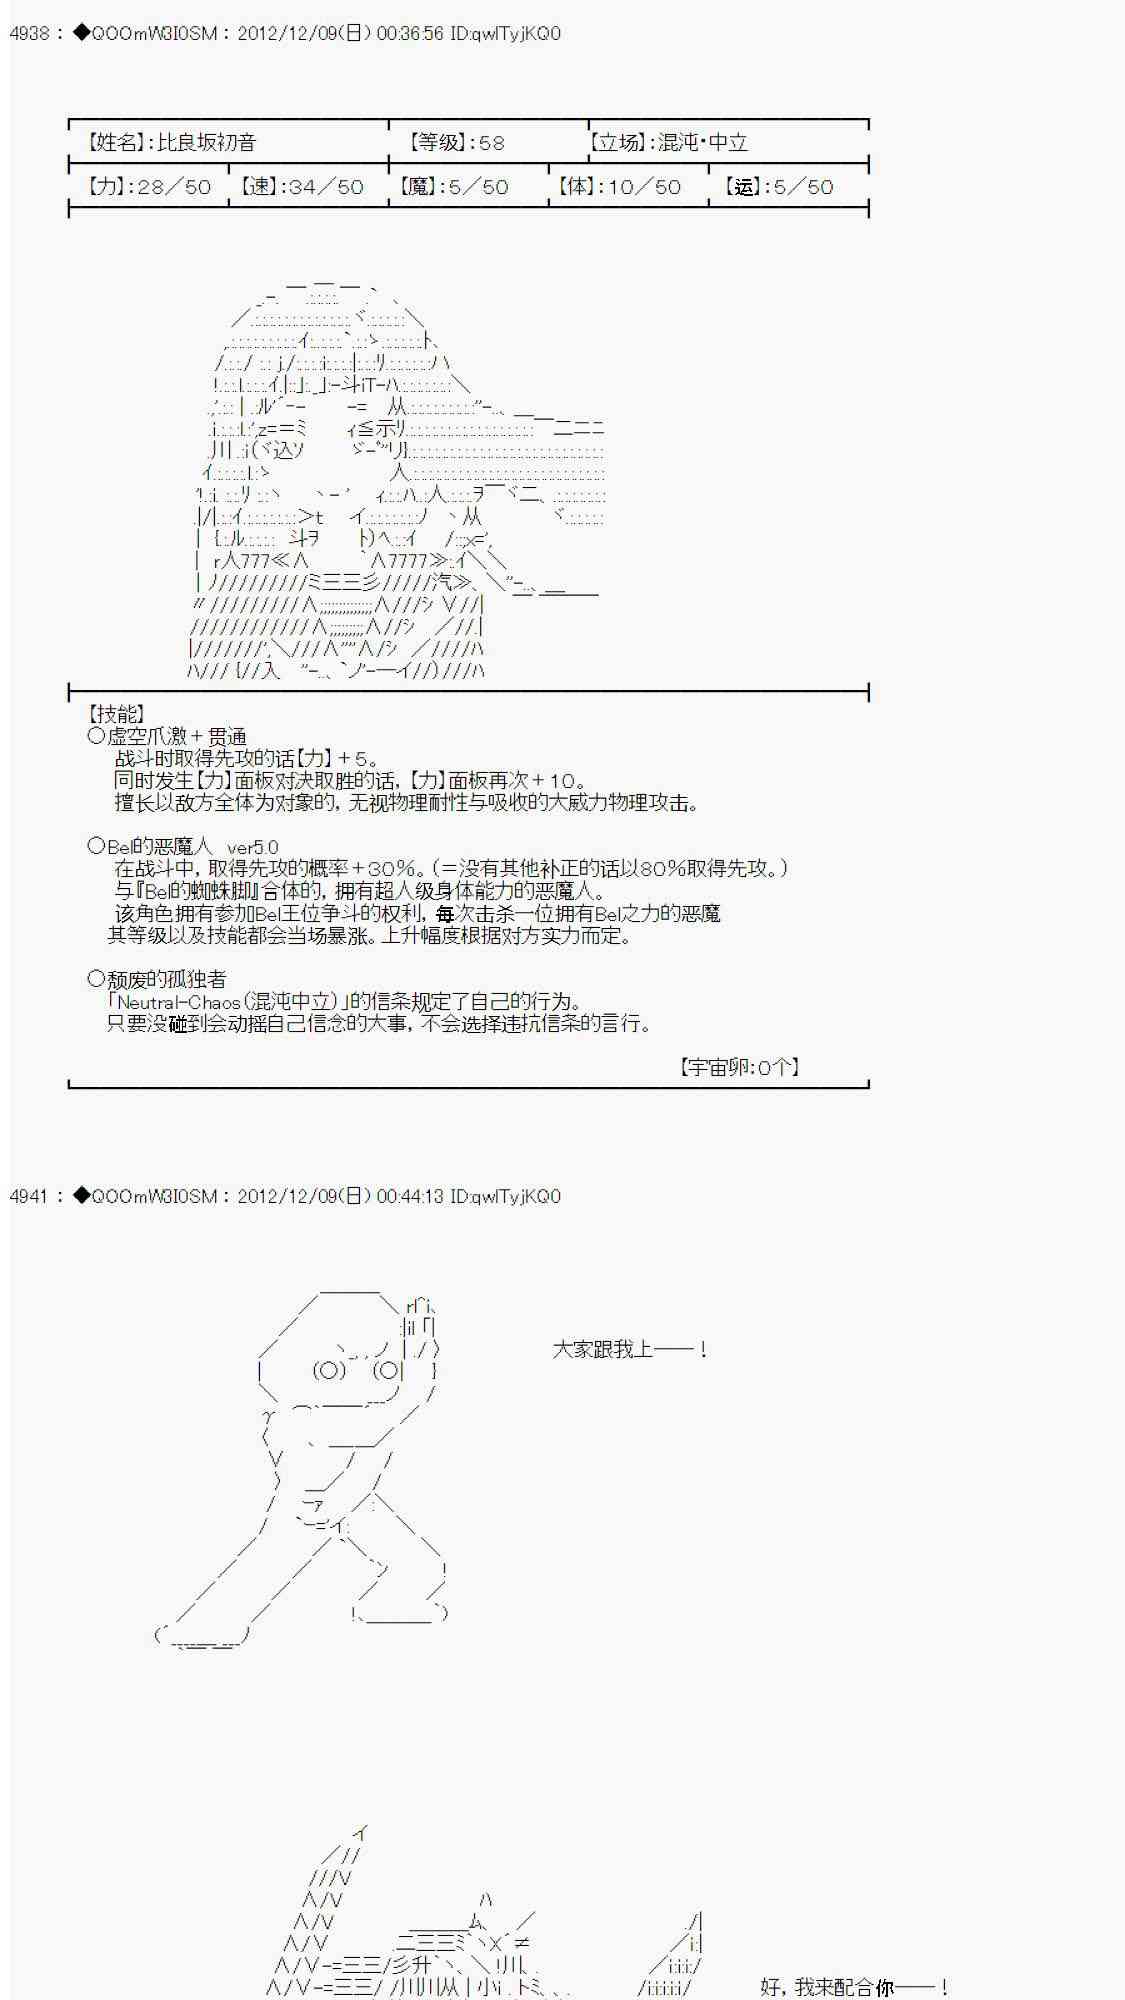 4938 : ◆QOOmW3I0SM : 2012/12/09(日) 00:36:56 ID:qwlTyjKQ0
【姓名】:比良坂初音 【等级】:58 【立场】:混沌·中立
【力】:28／50 【速】:34／50 【魔】:5／50 【体】:10／50 【运】:5／50
【技能】
○虚空爪激＋贯通
战斗时取得先攻的话【力】＋5。
同时发生【力】面板对决取胜的话,【力】面板再次＋10。
擅长以敌方全体为对象的, 无视物理耐性与吸收的大威力物理攻击。
○Bel的恶魔人 ver5.0
在战斗中, 取得先攻的概率＋30％。(＝没有其他补正的话以80％取得先攻。)
与『Bel的蜘蛛脚』合体的, 拥有超人级身体能力的恶魔人。
该角色拥有参加Bel王位争斗的权利, 每次击杀一位拥有Bel之力的恶魔
其等级以及技能都会当场暴涨。上升幅度根据对方实力而定。
○颓废的孤独者
「Neutral-Chaos(混沌中立)」的信条规定了自己的行为。
只要没碰到会动摇自己信念的大事, 不会选择违抗信条的言行。
【宇宙卵:0个】
4941 : ◆QOOmW3I0SM : 2012/12/09(日) 00:44:13 ID:qwlTyjKQ0
大家跟我上——！
好, 我来配合你——！